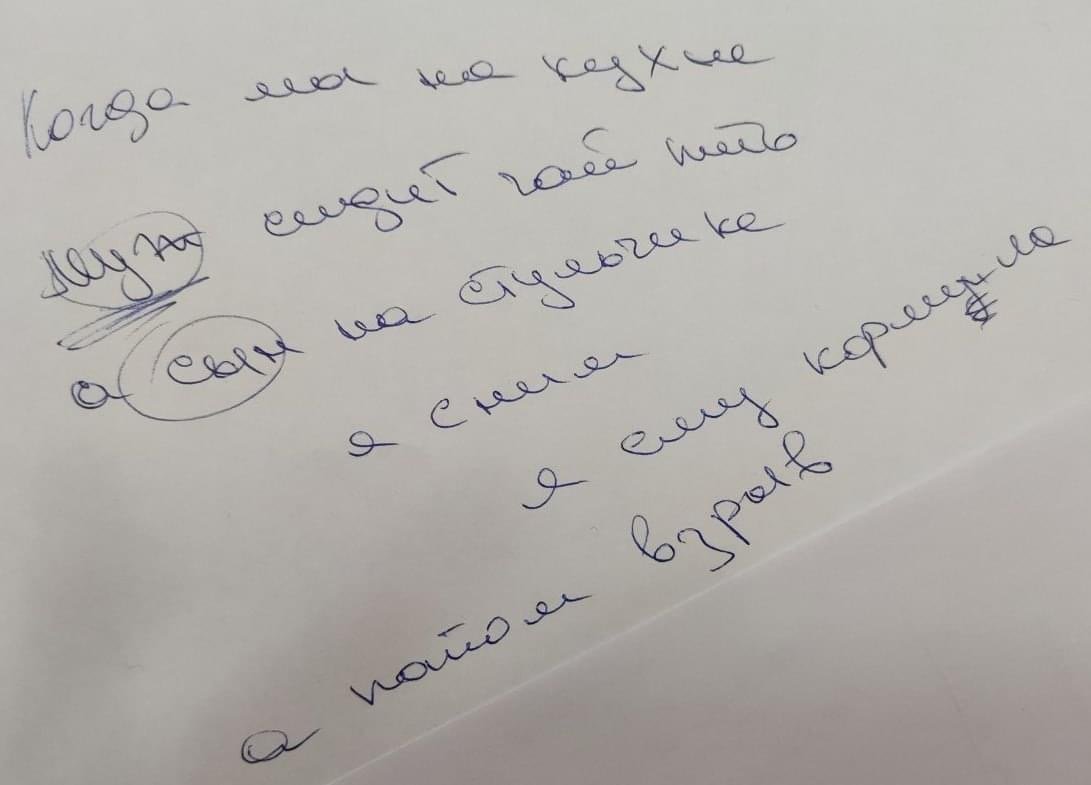 Когда ма на кухне
муж сидит чай пить
а сын на стульчике
я с ним
я ему кормила
а патом взрыв